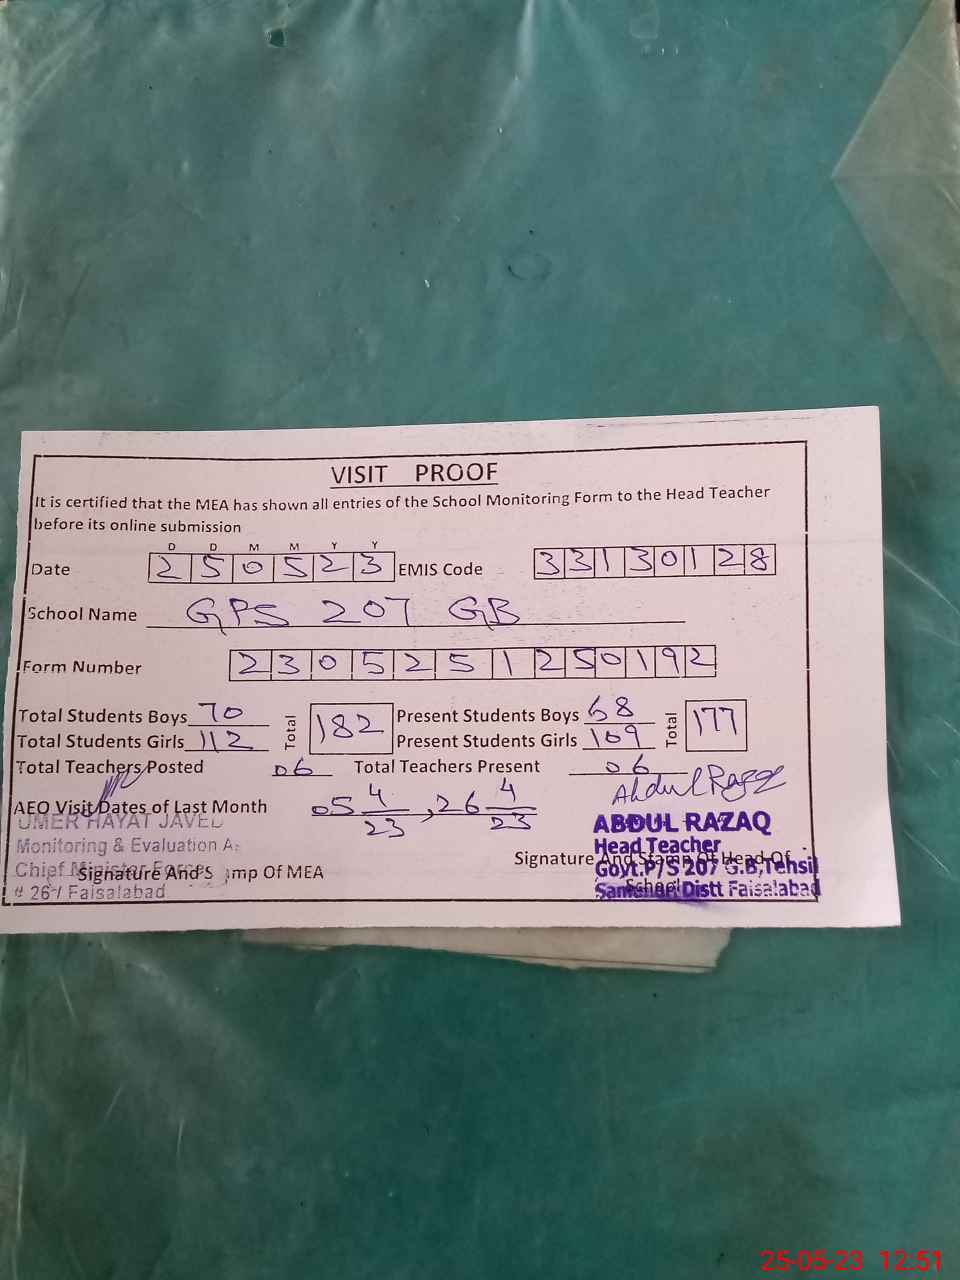 VISIT PROOF
It is certified that the MEA has shown all entries of the School Monitoring Form to the Head Teacher
before its online submission
D D M M Y Y
Date 2 5 0 5 2 3 EMIS Code 3 3 1 3 0 1 2 8
School Name GPS 207 GB
Form Number 2 3 0 5 2 5 1 2 5 0 1 9 2
Total Students Boys 70 Total 182 Present Students Boys 68 Total 177
Total Students Girls 112 Present Students Girls 109
Total Teachers Posted 06 Total Teachers Present 06
Abdul Razaq
AEO Visit Dates of Last Month 05 4/23, 26 4/23
UMER HAYAT JAVED
Monitoring & Evaluation As
Chief Minister Force
# 26 / Faisalabad
Signature And Stamp Of MEA
ABDUL RAZAQ
Head Teacher
Signature And Stamp Of Head Of
School
Govt.P/S 207 G.B, Tehsil
Distt Faisalabad
25-05-23 12:51